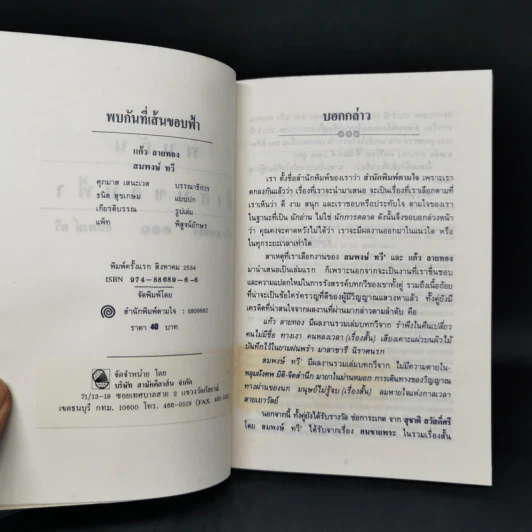 พบกันที่เส้นขอบฟ้า
แก้ว ลายทอง
สมพงษ์ ทวี
ศุภมาส เสนะเวส บรรณาธิการ
ธนิต สุขเกษม แบบปก
เกียรติบรรณ รูปเล่ม
แพ็ท พิสูจน์อักษร
พิมพ์ครั้งแรก สิงหาคม 2534
ISBN 974-88689-6-6
จัดพิมพ์โดย
สำนักพิมพ์ตามใจ : 5809682
ราคา 40 บาท
จัดจำหน่าย โดย
บริษัท สามัคคีสาส์น จำกัด
71/13-19 ซอยเทศบาลสาย 2 แขวงวัดกัลยาณ์
เขตธนบุรี กทม. 10600 โทร. 466-0519 (FAX.
บอกกล่าว
เรา ตั้งชื่อสำนักพิมพ์ของเราว่า สำนักพิมพ์ตามใจ เพราะเรา
ตกลงกันแล้วว่า เรื่องที่เราจะนำมาเสนอ จะเป็นเรื่องที่เราเลือกตามที่
เราเห็นว่า ดี งาม สนุก และเราชอบหรือประทับใจ ตามใจของเรา
ในฐานะที่เป็น นักอ่าน ไม่ใช่ นักการตลาด ดังนั้นจึงขอบอกล่วงหน้า
ว่า คุณคงจะคาดหวังไม่ได้ว่า เราจะมีผลงานออกมาในแนวใด หรือ
ในทุกระยะเวลาเท่าใด
สาเหตุที่เราเลือกงานของ สมพงษ์ ทวี' และ แก้ว ลายทอง
มานำเสนอเป็นเล่มแรก ก็เพราะนอกจากจะเป็นงานที่เราชื่นชอบ
และความแปลกใหม่ในการรังสรรค์บทกวีของเขาทั้งคู่ รวมถึงเนื้อถ้อย
ที่น่าจะเป็นข้อใคร่ครวญที่ดีของผู้มีวิญญาณแสวงหาแล้ว ทั้งคู่ยังมี
เครดิตที่น่าสนใจจากผลงานที่ผ่านมากล่าวตามลำดับ คือ
แก้ว ลายทอง มีผลงานรวมเล่มบทกวีจาก รำพึงในคืนเปลี่ยว
คนไม่มีชื่อ ทางเงา คนหลงเวลา (เรื่องสั้น) เสียงเคาะแผ่วบนผิวไม้
บันทึกไว้ในยามฝนพรำ มาลาชารี นิราศนรก
สมพงษ์ ทวี' มีผลงานรวมเล่มบทกวีจาก ไม่มีความตายใน-
หลุมฝังศพ มิติ-จิตสำนึก มายาในม่านหมอก การเดินทางของวิญญาณ
ทางผ่านของนก มนุษย์ไม่รู้จบ (เรื่องสั้น) ลมหายใจแห่งกาลเวลา
สายเอาวัลย์
นอกจากนี้ ทั้งคู่ยังได้รับรางวัล ช่อการะเกด จาก สุชาติ สวัสดิ์ศรี
โดย สมพงษ์ ทวี' ได้รับจากเรื่อง คนขายพระ ในรวมเรื่องสั้น